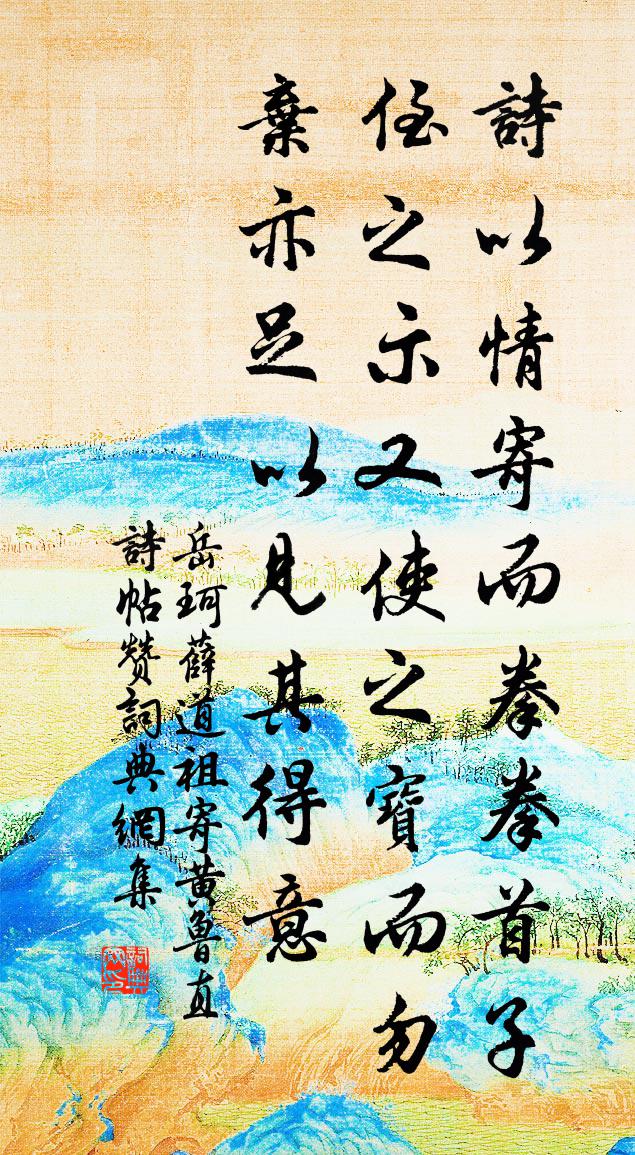 詩以情寄而拳拳首子
侄之示又使之寶而勿
棄亦足以見其得意
岳珂薛道祖寄黃魯直
詩帖贊詞典網集